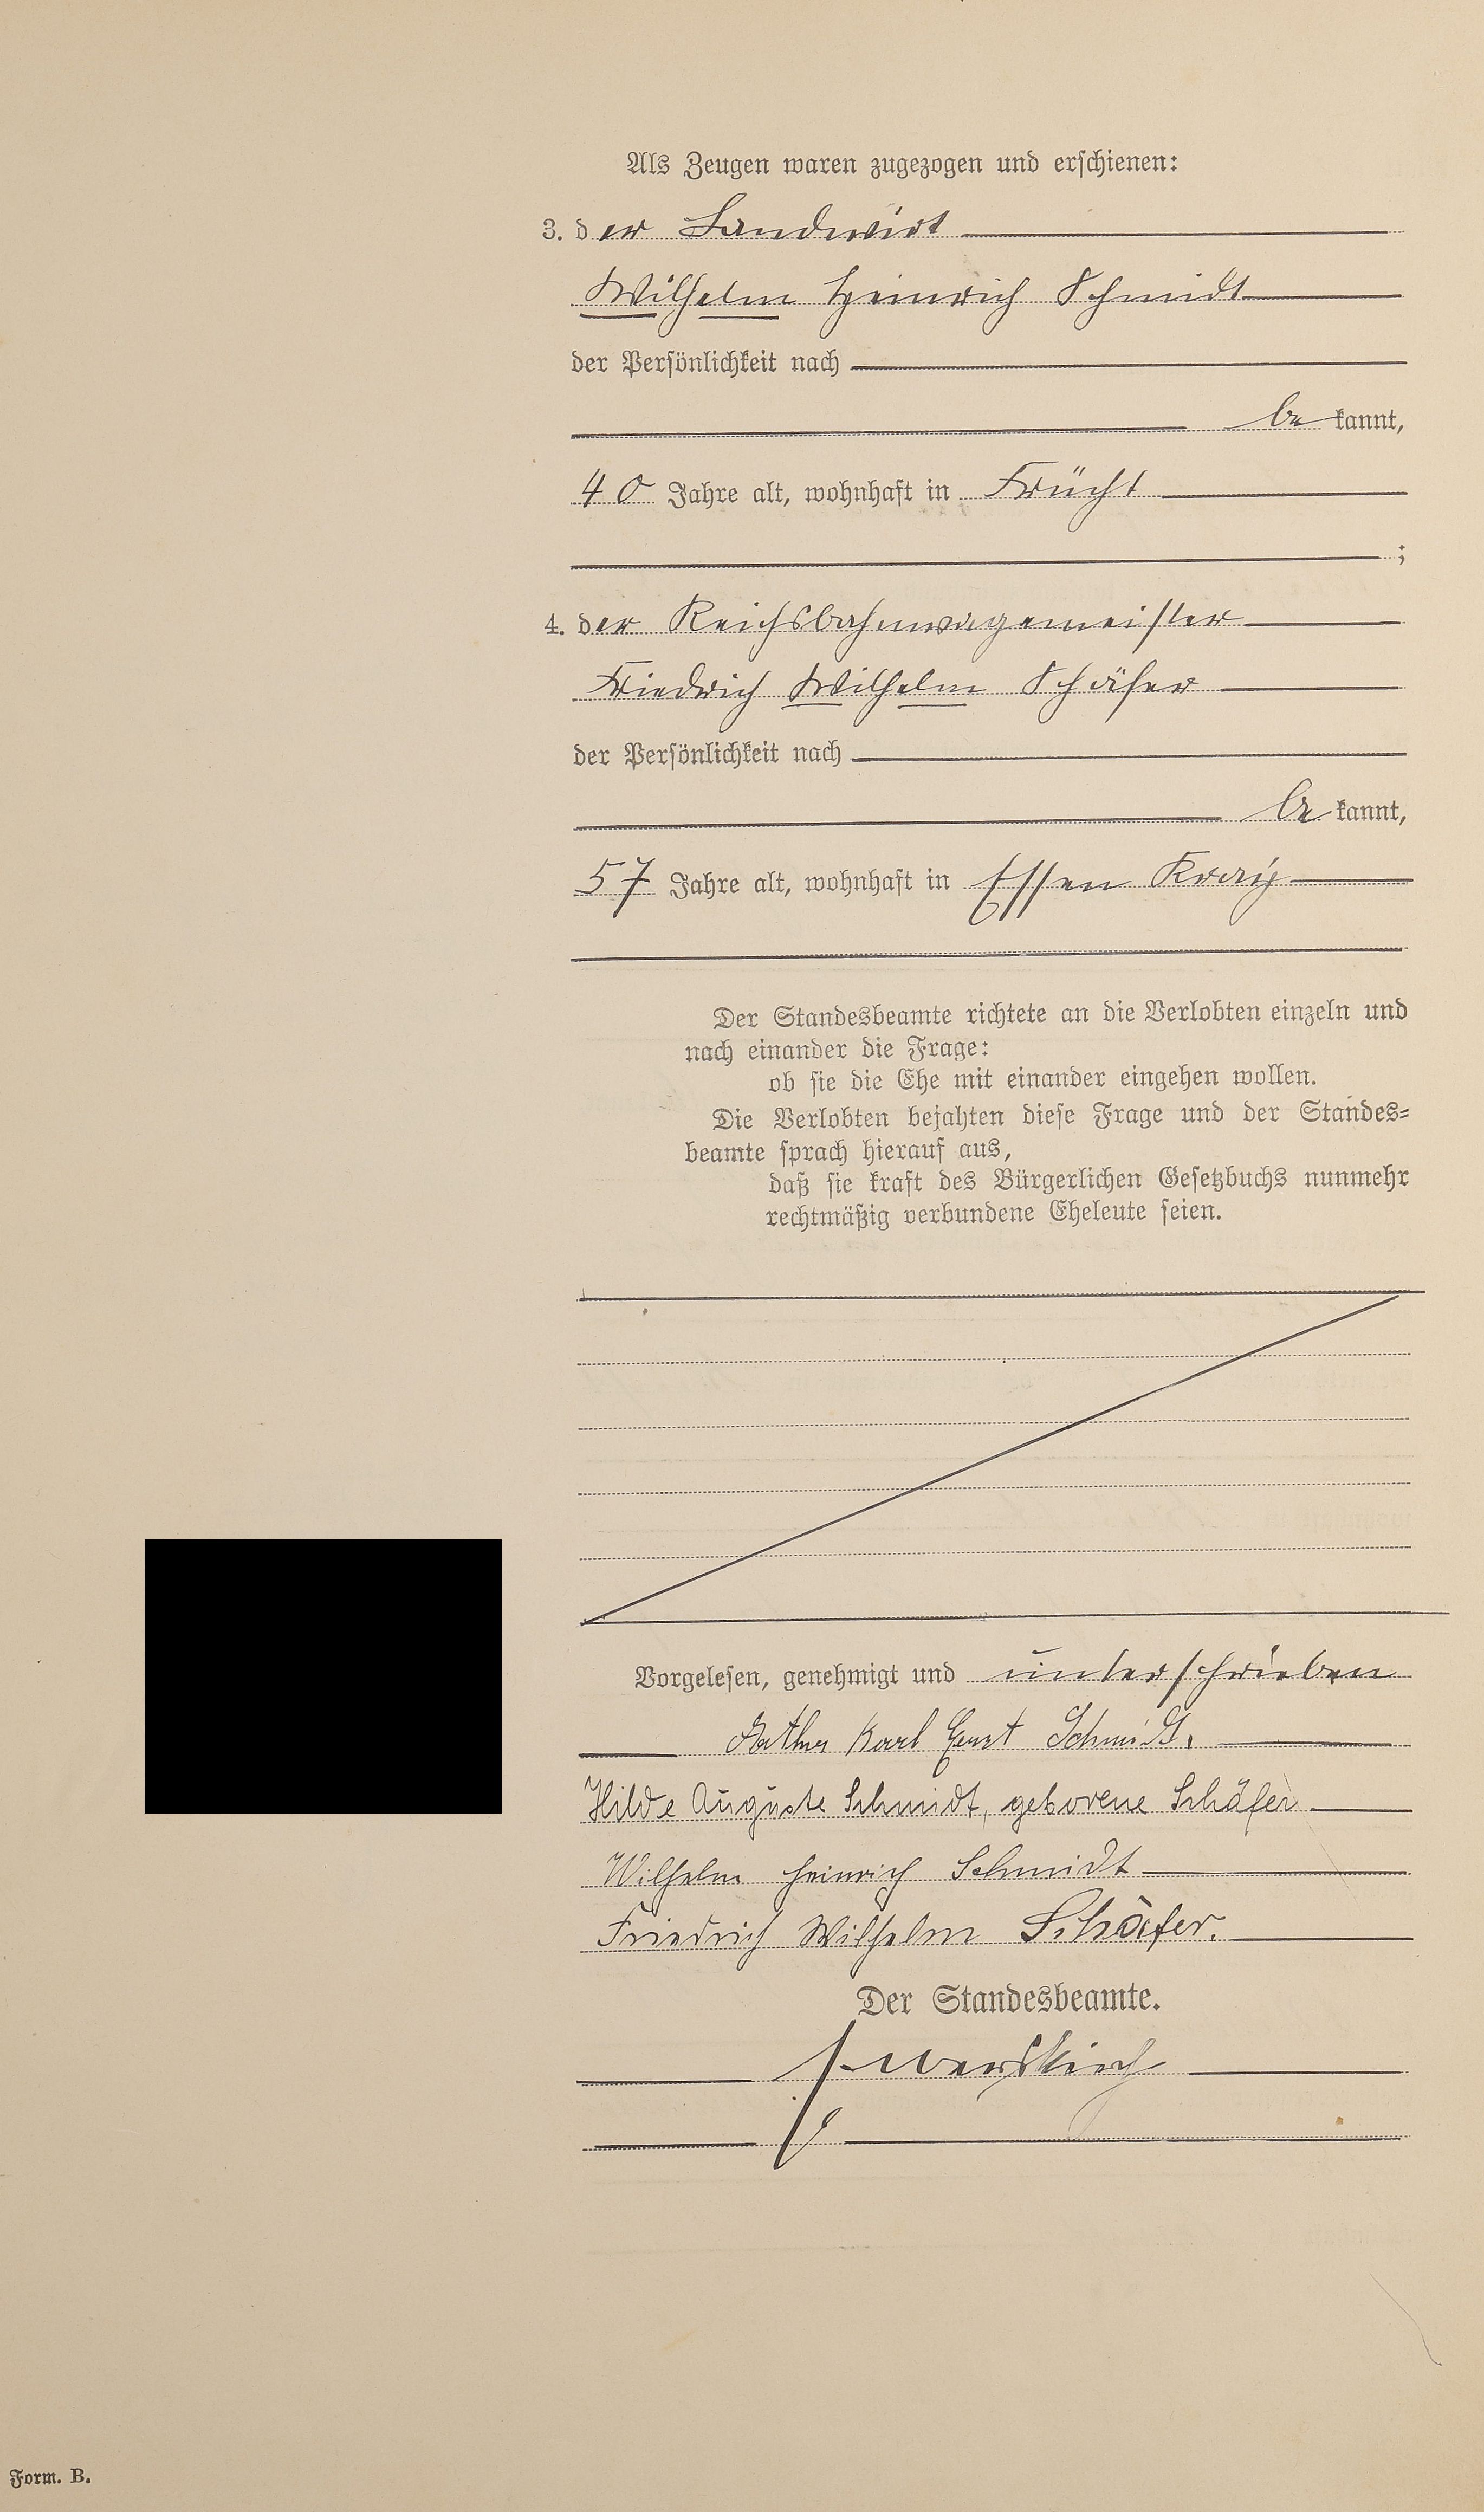 Als Zeugen waren zugezogen und erschienen:
3. der Landwirt
Wilhelm Heinrich Schmidt
der Persönlichkeit nach
bekannt,
40 Jahre alt, wohnhaft in Frücht
;
4. der Reichsbahnwagemeister
Friedrich Wilhelm Schäfer
der Persönlichkeit nach
bekannt,
57 Jahre alt, wohnhaft in Essen Kray
Der Standesbeamte richtete an die Verlobten einzeln und
nach einander die Frage:
ob sie die Ehe mit einander eingehen wollen.
Die Verlobten bejahten diese Frage und der Standes-
beamte sprach hierauf aus,
daß sie kraft des Bürgerlichen Gesetzbuchs nunmehr
rechtmäßig verbundene Eheleute seien.
Vorgelesen, genehmigt und unterschrieben
Karl Ernst Schmidt.
Hilde Auguste Schmidt, geborene Schäfer
Wilhelm Heinrich Schmidt
Friedrich Wilhelm Schäfer.
Der Standesbeamte.
Form. B.